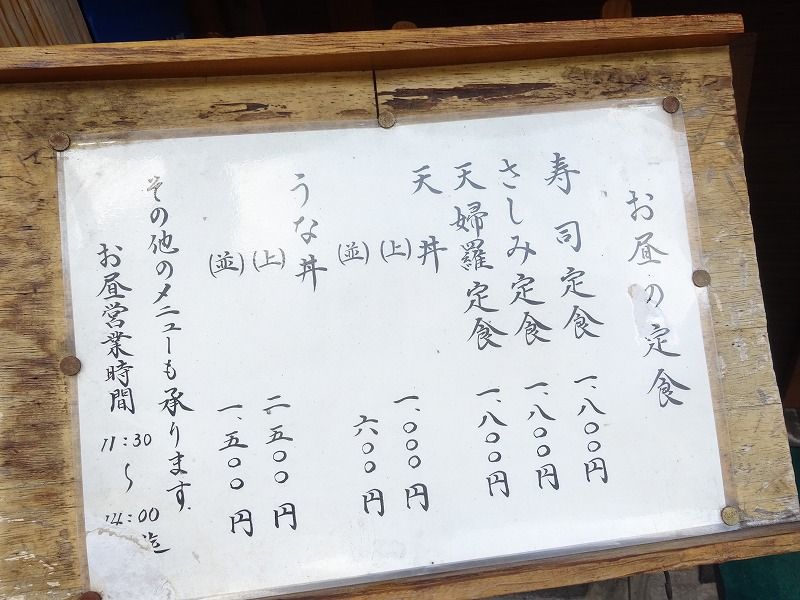 お昼の定食
寿司定食 一、八〇〇円
さしみ定食 一、八〇〇円
天婦羅定食 一、八〇〇円
天丼
(上) 一、〇〇〇円
(並) 六〇〇円
うな丼
(上) 二、五〇〇円
(並) 一、五〇〇円
その他のメニューも承ります。
お昼営業時間 11:30〜14:00迄